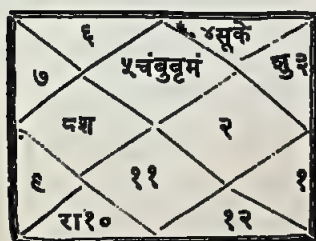 ६ ४सूके
५चंबुबृमं शु३
७
८श २
९ ११ १
रा१० १२